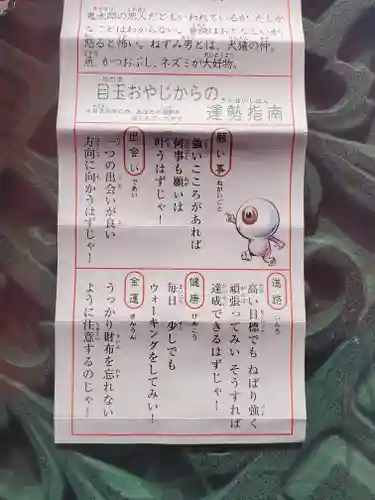 鬼太郎の恋人だともいわれているが、たしか
なことはわからない。普段はおとなしいが
怒ると怖い。ねずみ男とは、犬猿の仲。
魚、かつおぶし、ネズミが大好物。
目玉おやじからの
運勢指南
願い事
ねがいごと
強いこころがあれば
何事も願いは
叶うはずじゃ!
出会い
であい
一つの出会いが良い
方向に向かうはずじゃ!
進路
しんろ
高い目標でも ねばり強く
頑張ってみい そうすれば
達成できるはずじゃ!
健康
けんこう
毎日 少しでも
ウォーキングをしてみい!
金運
きんうん
うっかり財布を忘れない
ように注意するのじゃ!